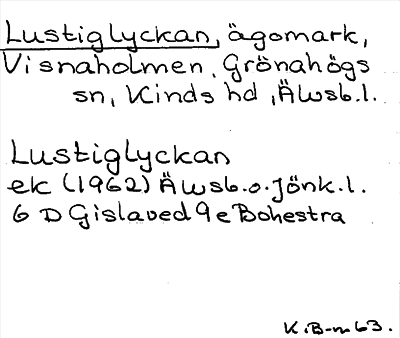 Lustiglyckan, ägomark,
Visnaholmen, Grönahögs
sn, Kinds hd, Älvsb.l.
Lustiglyckan
ek (1962) Älvsb.o.Jönk.l.
6 D Gislaved 9e Bohestra
K.B-m 63.